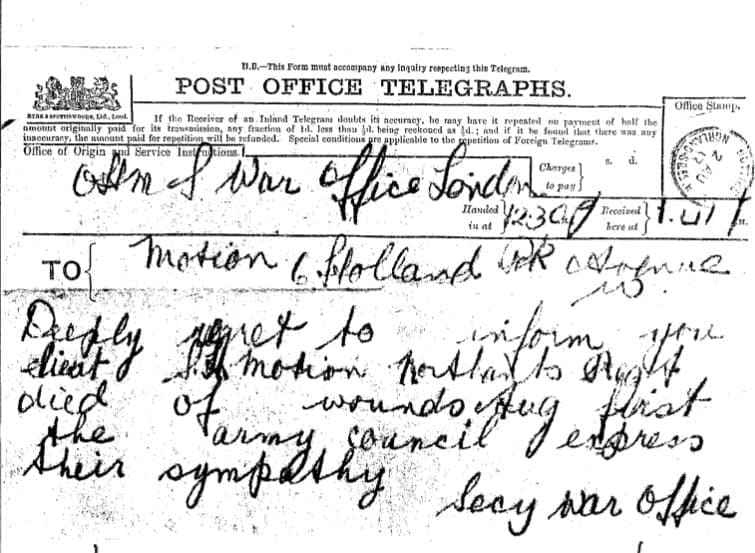 N.B.—This Form must accompany any Inquiry respecting this Telegram.
POST OFFICE TELEGRAPHS.
If the Receiver of an Inland Telegram doubts its accuracy, he may have it repeated on payment of half the
amount originally paid for its transmission, any fraction of 1d. less than ½d. being reckoned as ½d.; and if it be found that there was any
inaccuracy, the amount paid for repetition will be refunded. Special conditions are applicable to the repetition of Foreign Telegrams.
Office Stamp.
Office of Origin and Service Instructions.
Charges to pay
s. d.
OHMS War Office London
Handed in at
12.30
Received here at
TO
Motion 6 Holland Avenue
W.
Deeply regret to inform you
Lieut Motion
died of wounds Aug first
the army council express
their sympathy
Secy War Office